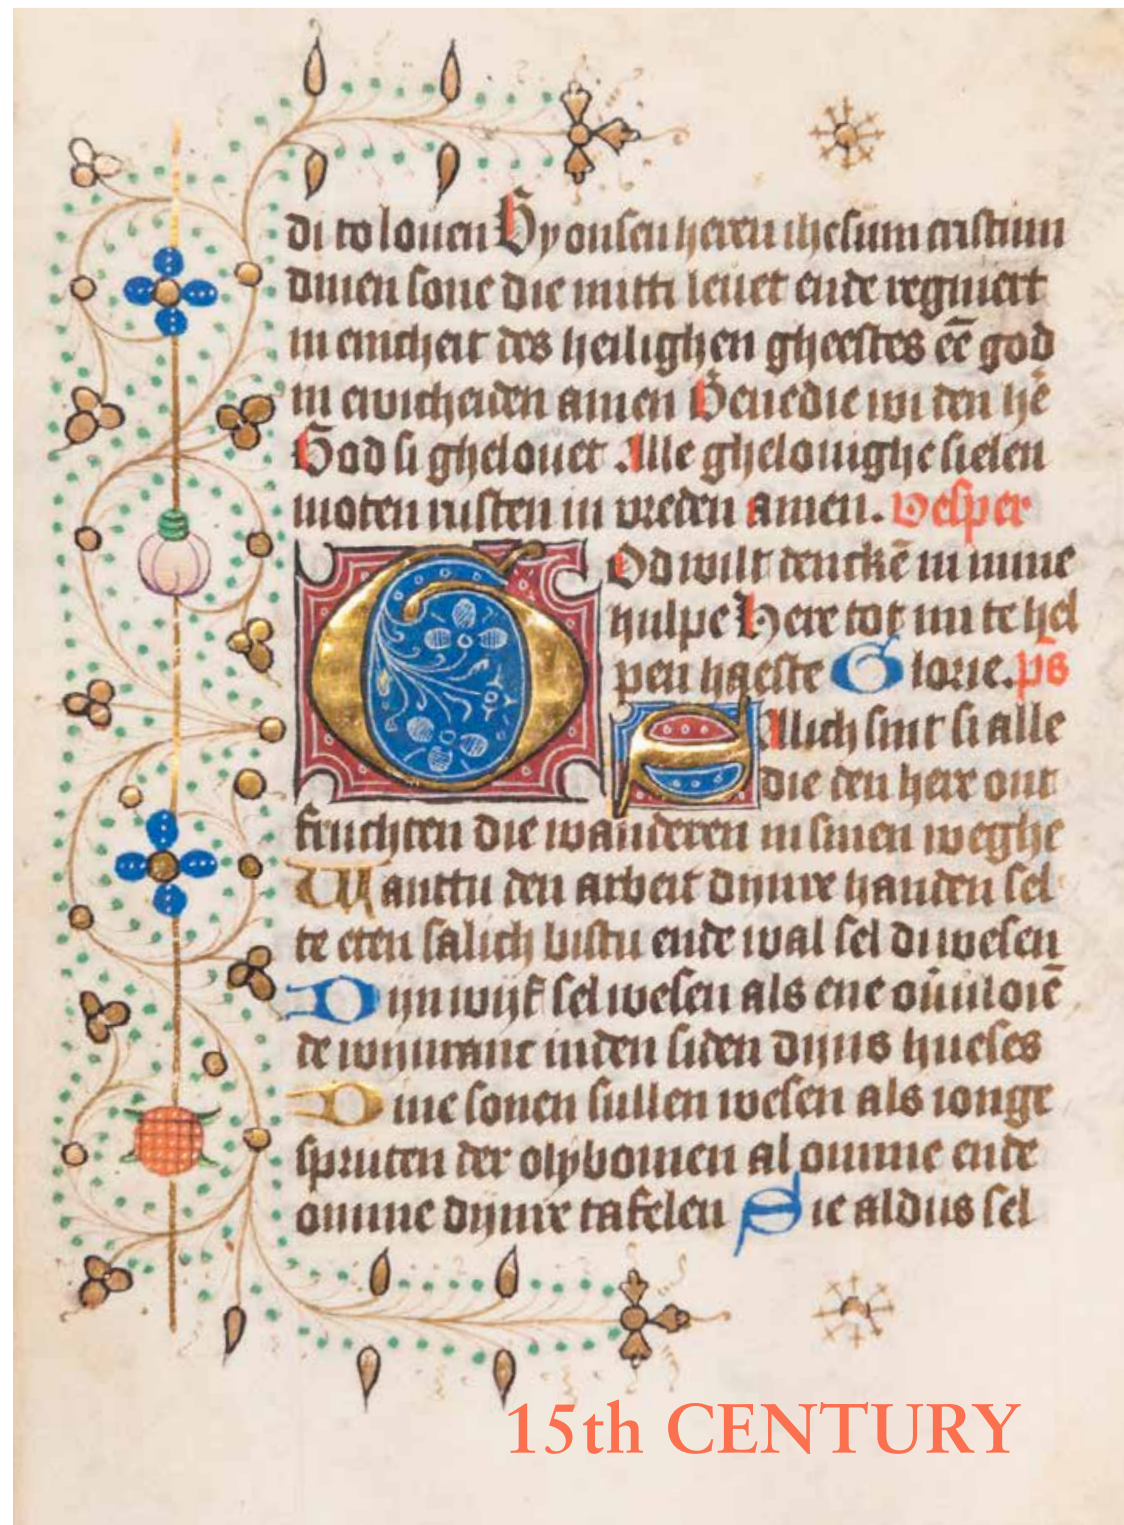 di to louen By onsen heren ihesum cristum
dinen sone die mitti leuet ende regniert
in enicheit des heilighen gheestes eē god
in ewicheiden amen Benedie wi den hē
God si ghelouet Alle ghelouighe sielen
moten rusten in vreden amen. vesper
God wilt denckē in mine
hulpe Here tot mi te hel
pen haeste Glorie. ps
Salich sint si alle
die den here ont
fruchten die wanderen in sinen weghe
Wanttu den arbeit dijnre handen sel
te eten salich bistu ende wal sel di wesen
Dijn wijf sel wesen als ene
de wijnrant in den siden dijns hueses
Dine sonen sullen wesen als ionge
spruten der olybomen al omme ende
omme dijnre tafelen Sie aldus sel
15th CENTURY